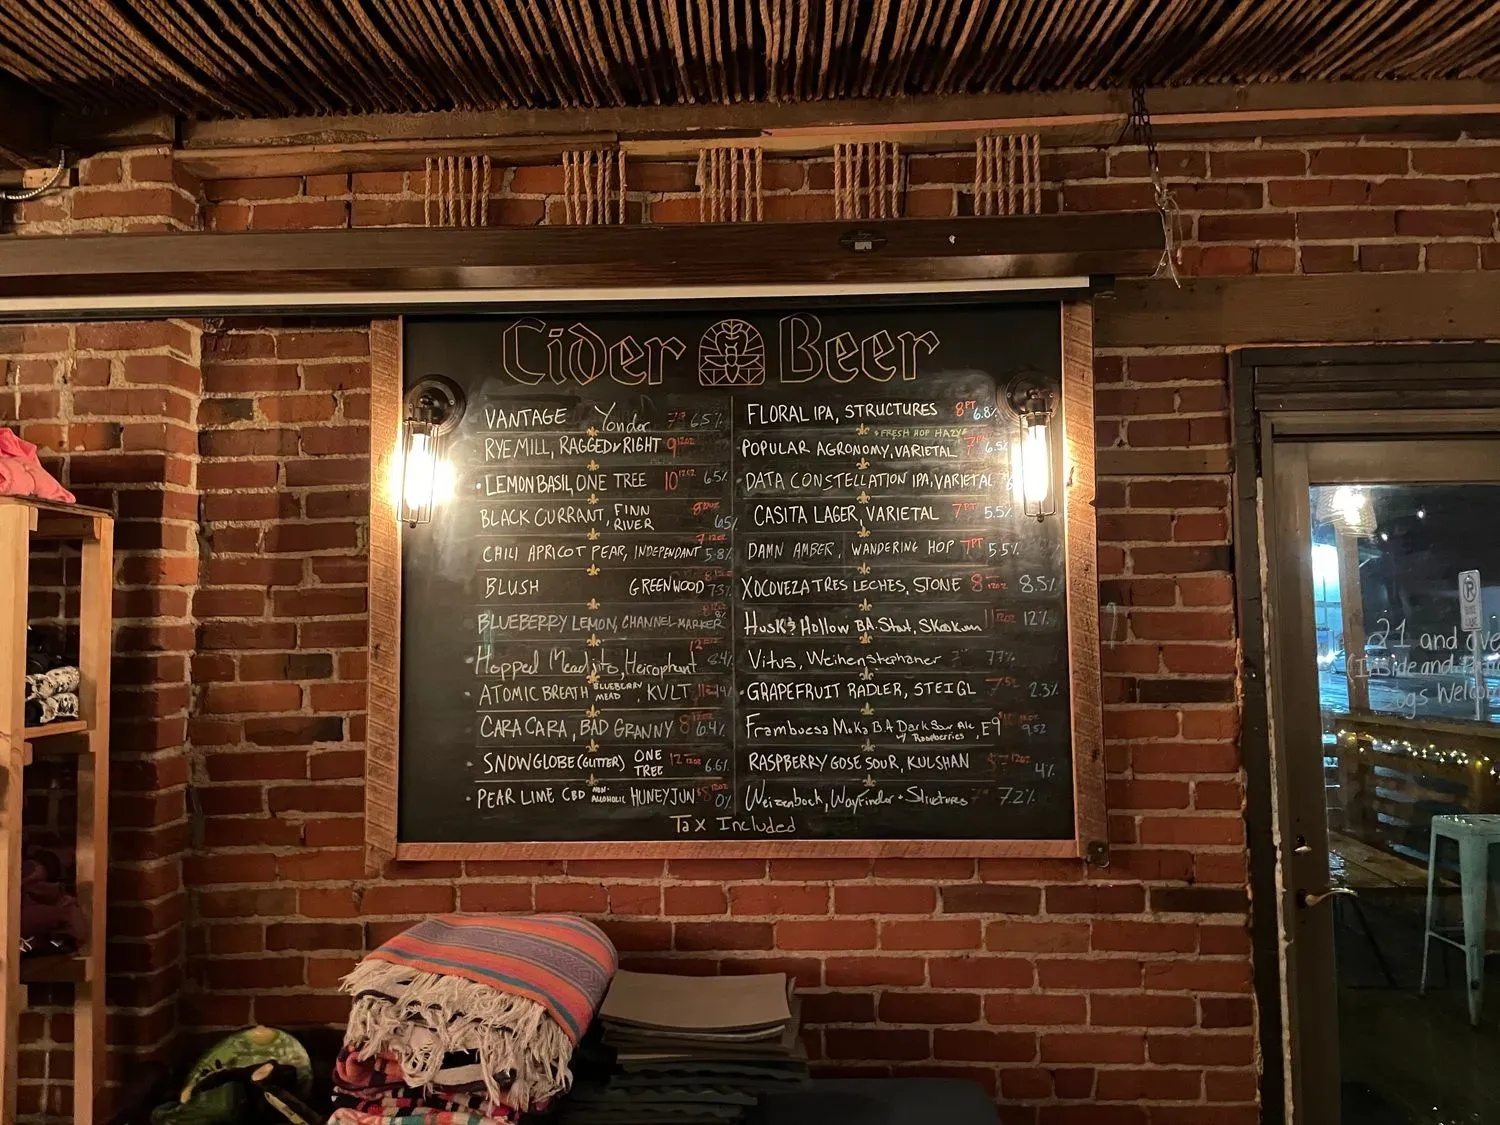 Cider Beer
VANTAGE Yonder 6.5%
RYE MILL, RAGGED & RIGHT 9 12oz
• LEMON BASIL, ONE TREE 10 12oz 6.5%
BLACK CURRANT, FINN RIVER 6.5%
CHILI APRICOT PEAR, INDEPENDANT 7 12oz 5.8%
BLUSH GREENWOOD 7.3%
BLUEBERRY LEMON, CHANNEL MARKER 8%
• Hopped Meadjito, Heirophant 12 12oz 8.4%
• ATOMIC BREATH BLUEBERRY MEAD, KVLT 14%
CARA CARA, BAD GRANNY 8 12oz 6.4%
• SNOWGLOBE (GLITTER) ONE TREE 12 12oz 6.6%
• PEAR LIME CBD NON-ALCOHOLIC HUNEYJUN 0%
FLORAL IPA, STRUCTURES 8 PT 6.8%
* FRESH HOP HAZY *
POPULAR AGRONOMY, VARIETAL 7 PT 6.5%
• DATA CONSTELLATION IPA, VARIETAL
CASITA LAGER, VARIETAL 7 PT 5.5%
DAMN AMBER, WANDERING HOP 7 PT 5.5%
XOCOVEZA TRES LECHES, STONE 8 12oz 8.5%
Husk & Hollow B.A. Stout, Skookum 11 12oz 12%
Vitus, Weihenstephaner 7.7%
• GRAPEFRUIT RADLER, STEIGL 2.3%
Frambuesa Moka B.A Dark Sour Ale w/ Raspberries, E9 9.52
RASPBERRY GOSE SOUR, KULSHAN 4%
Weizenbock, Wayfinder + Structures 7.2%
Tax Included
21 and over
(Inside and
Dogs Welcome